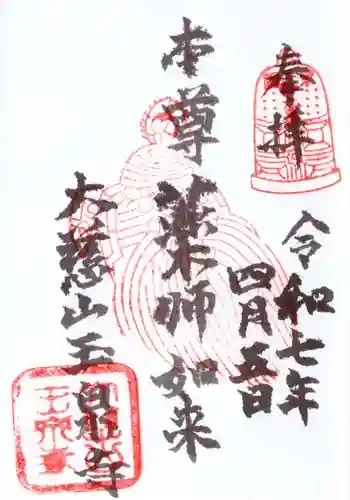 奉拝
令和七年
四月五日
本尊薬師如来
大慈山